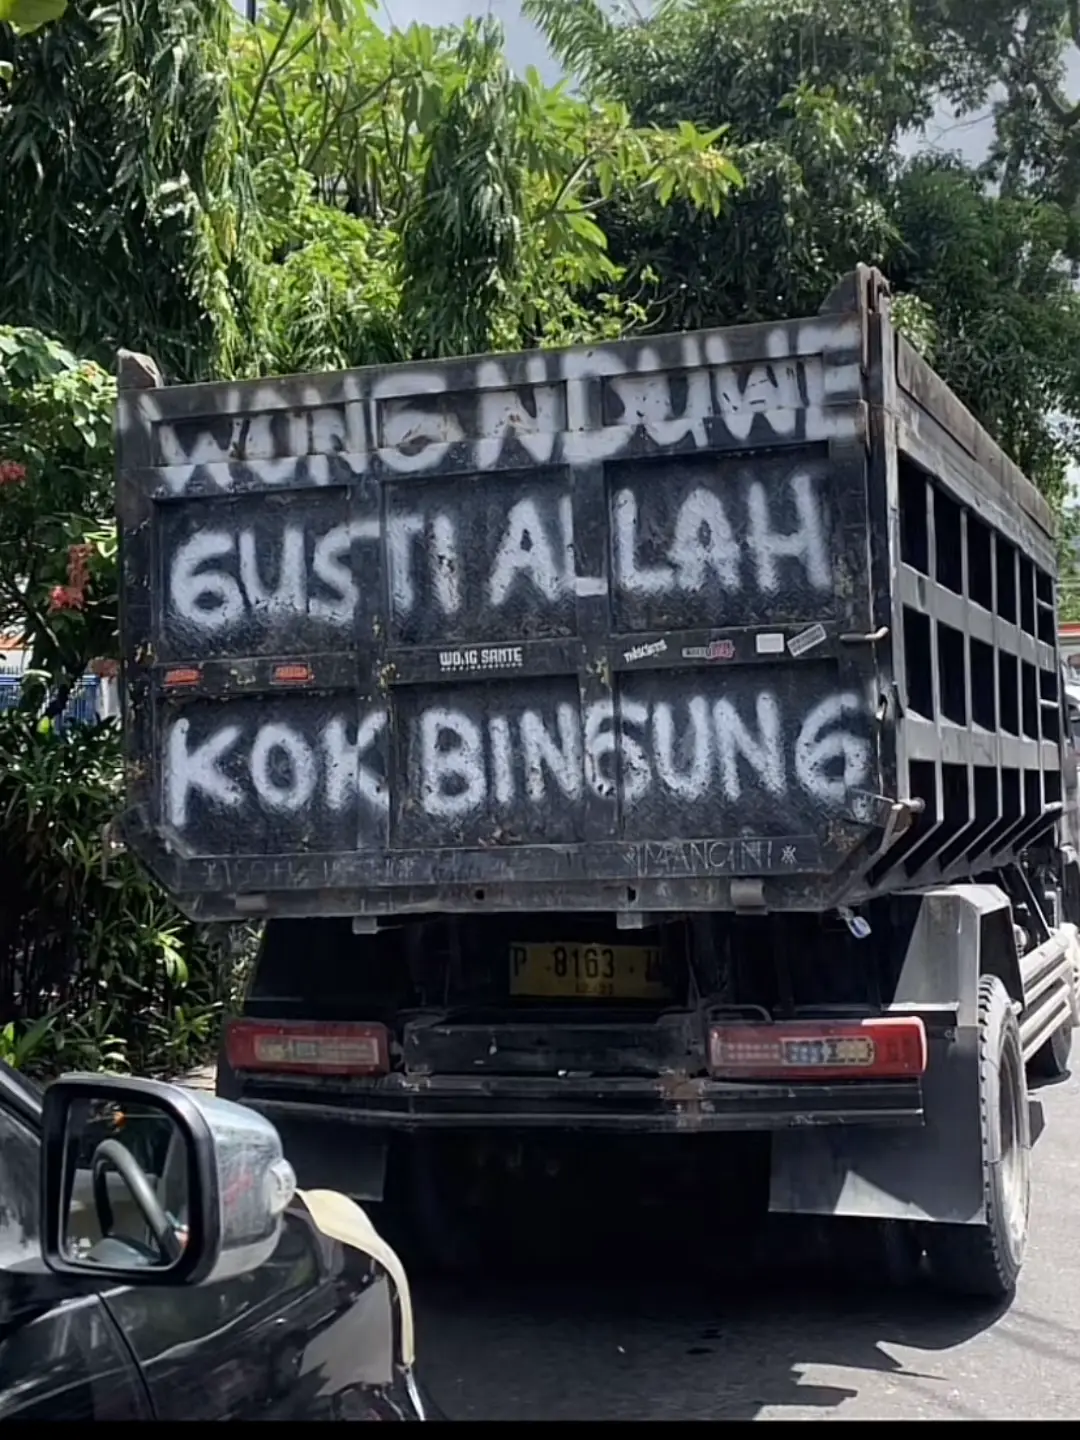 WONG NDUWE
GUSTI ALLAH
WO.IG SANTE
KOK BINGUNG
MANCINI
P 8163